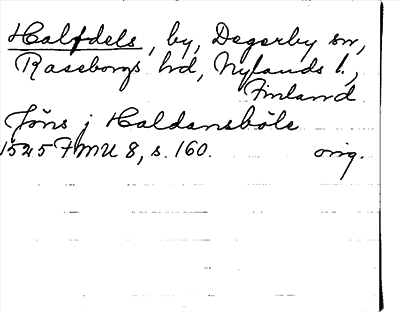 Halfdels, by, Degerby sn,
Raseborgs hd, Nylands l.,
Finland
Jöns j Haldansböle
1525 FMU 8, s. 160. orig.